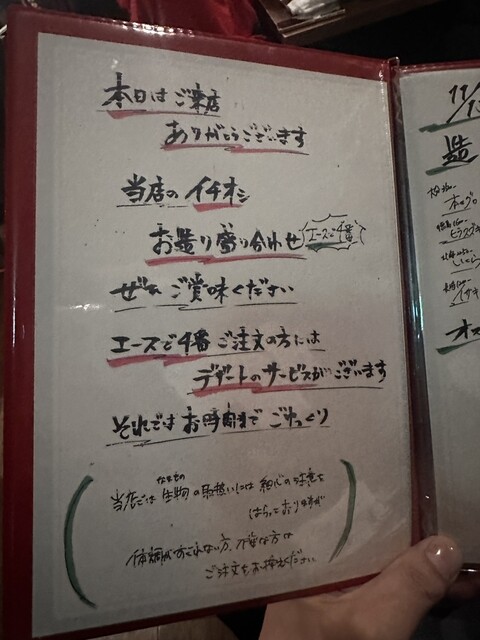 本日はご来店
ありがとうございます
当店のイチオシ
お造り盛り合わせ
エースで4番
ぜひご賞味ください
エースで4番ご注文の方には
デザートのサービスがございます
それではお時間までごゆっくり
なまもの
当店では生物の取扱いには細心の注意を
はらっておりますが
体調がすぐれない方、不安な方は
ご注文をお控えください
11/1
造
本マグロ
いくら
イサキ
オス